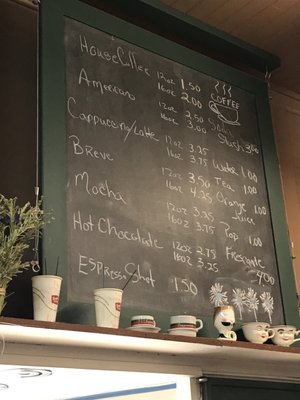 House Coffee 12oz 1.50
16oz 2.00
Americano 12oz 2.50
16oz 3.00
Cappuccino/Latte 12oz 3.25
16oz 3.75
Breve 12oz 3.50
16oz 4.25
Mocha 12oz 3.25
16oz 3.75
Hot Chocolate 12oz 2.75
16oz 3.25
Espresso Shot 1.50
COFFEE
Soda
Slush 3.50
Water 1.00
Tea 1.00
Orange
Juice 1.00
Pop 1.00
4.00